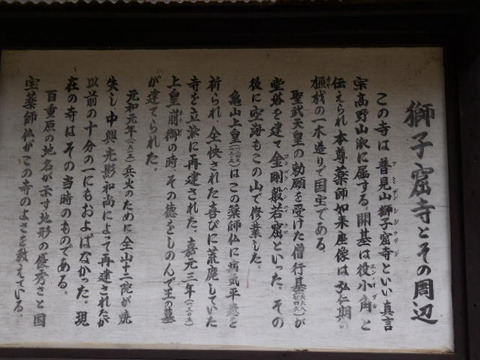 獅子窟寺とその周辺
この寺は普見山獅子窟寺といい真言
宗高野山派に属する。開基は役小角と
伝えられ本尊薬師如来座像は弘仁期の
一木造りで国宝である。
聖武天皇の勅願を受けた僧行基が
堂塔を建て金剛般若窟といった。その
後に空海もこの山で修業した。
亀山上皇はこの薬師仏に病気平癒を
祈られ、全快された喜びに荒廃していた
寺を立派に再建された。嘉元三年
上皇崩御の時、その徳をしのんで王の墓
が建てられた。
元和元年兵火のために全山十二院が焼
失し中興光影和尚によって再建されたが
以前の十分の一にもおよばなかった。現
在の寺はその当時のものである。
百重原の地名が示す地形の優秀さと国
宝薬師仏がこの寺のよさを教えている。